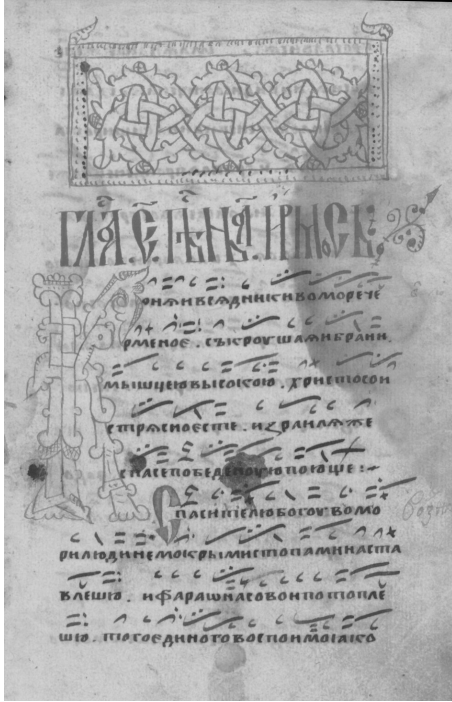 ГЛАС Є҃ ПѢН А҃ ІРМОСЪ
Кониѧ и всѧдники во море че
рменое . съкроушаѧи брани .
мышцею высокою . христосо и
стрѧсло есте . израилѧ же
спасе победеноую поюще :
Спасителю богоу во мо
ри люди немокрыми стопами наста
влешю . и фараѡна со вои потопле
шю . томоу единомоу воспоимо ꙗко